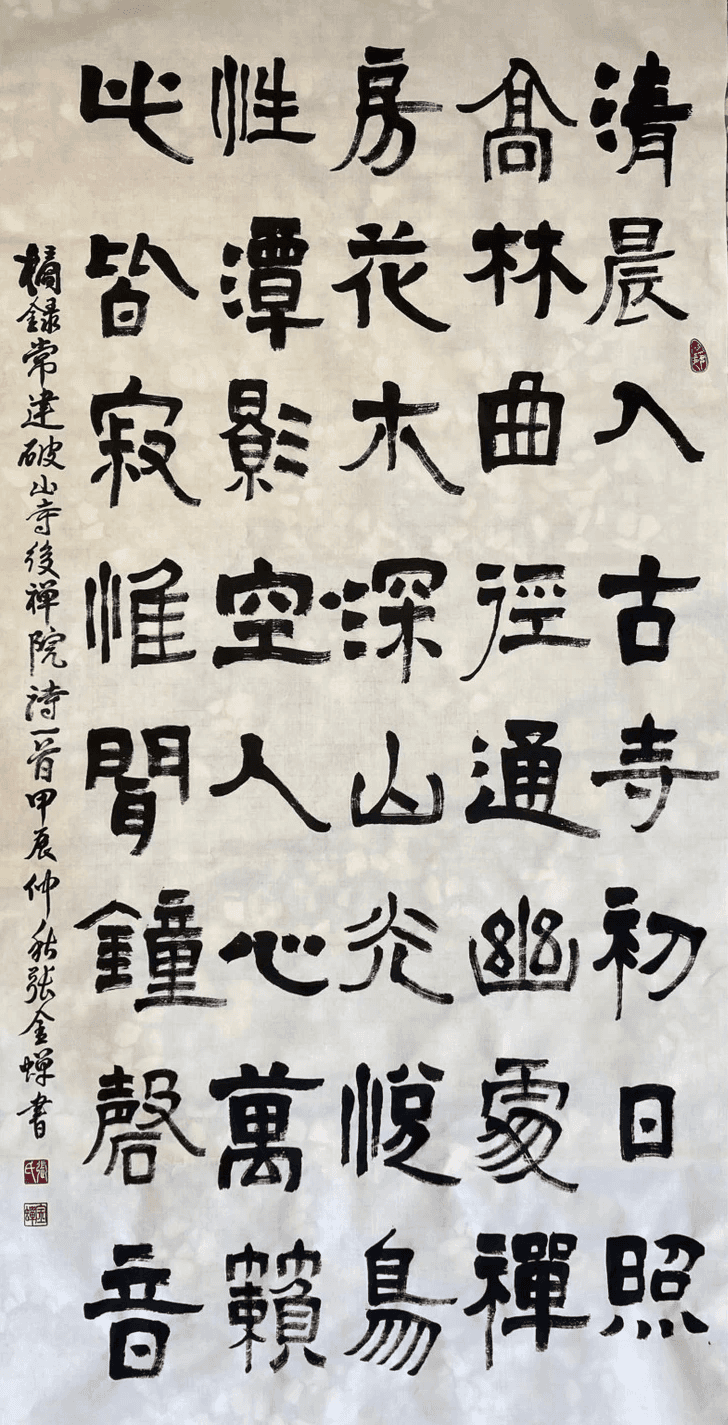 清晨入古寺初日照
高林曲徑通幽處禪
房花木深山光悅鳥
性潭影空人心萬籟
此皆寂惟聞鐘磬音
摘録常建破山寺後禅院詩一首甲辰仲秋張金蝉書
張氏